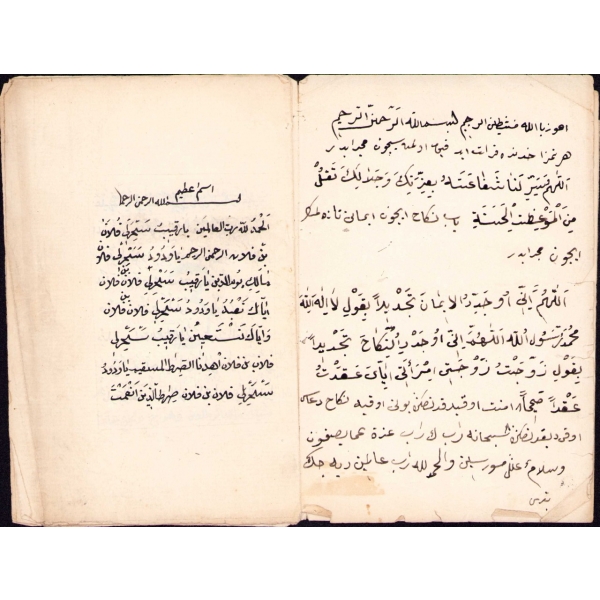 اعوز باالله مشيطن الرجيم بسم الله الرحمن الرحيم
هر نمازا خدنده قرات ايد
اللهم يسر لنا شفاعته بعزتك وجلالك تقل
من الموعظة الحسنة باب نكاح ايچون ايمانى تازه
ايچون مجرابدر
اللهم انى اوحدد الايمان تجديداً بقول لا اله الا الله
محمد رسول الله اللهم انى اوحدد النكاح تجديداً
بقول زوجت زوجتى امرأتى اياى عقدت
عقداً صحيحاً امنت اوقيه بونى اوقيه نكاح دعاسى
سبحانه راب ك راب عزة عما يصفون
وسلام على مورسين والحمد لله راب عالمين ديه جك
اسم اعظيم
بسم الله الرحمن الرحيم
الحمد لله رب العالمين يا رقيب سخرلى فلان
بن فلان الرحمن الرحيم يا ودود سخرلى فلان
مالك يوم الدين يا رقيب سخرلى فلان بن فلان
اياك نعبد يا ودود سخرلى فلان بن فلان
واياك نستعين يا رقيب سخرلى
فلان بن فلان اهدنا الصراط المستقيم يا ودود
سخرلى فلان بن فلان صراط الذين انعمت